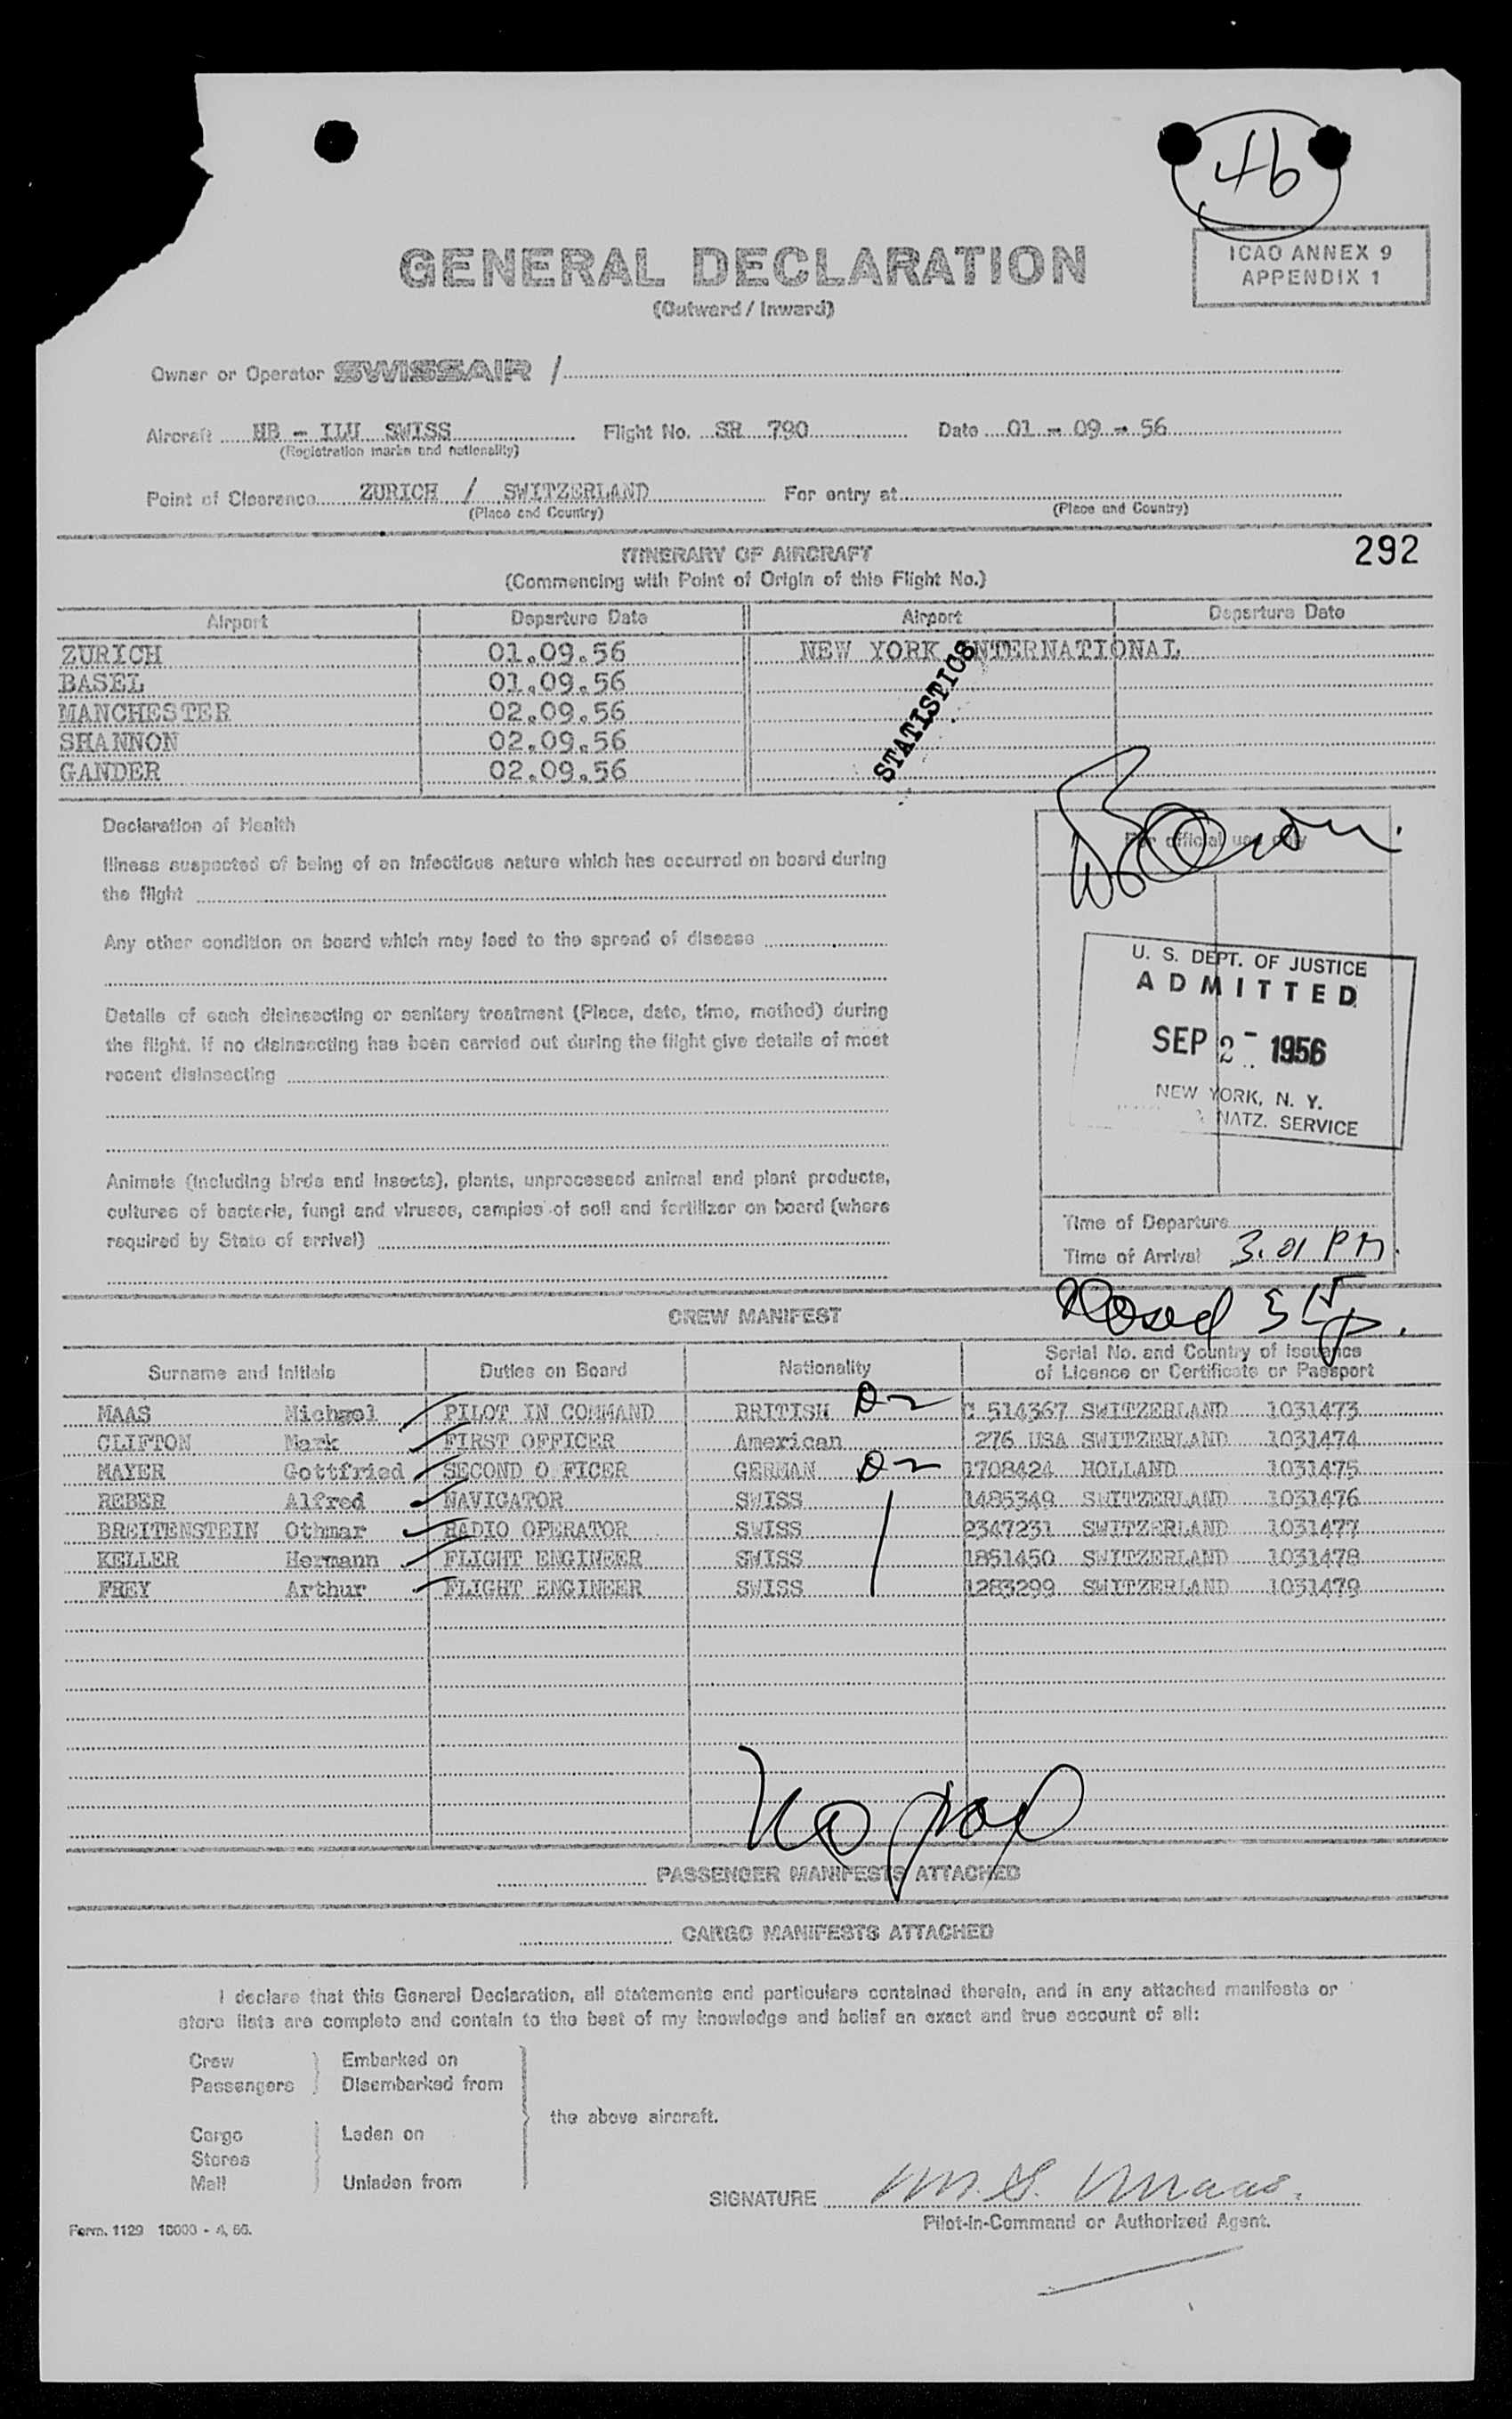 46
ICAO ANNEX 9
APPENDIX 1
GENERAL DECLARATION
(Outward / Inward)
Owner or Operator SWISSAIR /
Aircraft HB - ILU SWISS Flight No. SR 790 Date 01 - 09 - 56
(Registration marks and nationality)
Point of Clearance ZURICH / SWITZERLAND For entry at
(Place and Country) (Place and Country)
292
ITINERARY OF AIRCRAFT
(Commencing with Point of Origin of this Flight No.)
Airport Departure Date Airport Departure Date
ZURICH 01.09.56 NEW YORK INTERNATIONAL
BASEL 01.09.56
MANCHESTER 02.09.56
SHANNON 02.09.56
GANDER 02.09.56
STATISTICS
Declaration of Health
Illness suspected of being of an infectious nature which has occurred on board during
the flight
Any other condition on board which may lead to the spread of disease
Details of each disinsecting or sanitary treatment (Place, date, time, method) during
the flight. If no disinsecting has been carried out during the flight give details of most
recent disinsecting
Animals (including birds and insects), plants, unprocessed animal and plant products,
cultures of bacteria, fungi and viruses, samples of soil and fertilizer on board (where
required by State of arrival)
For official use only
U. S. DEPT. OF JUSTICE
ADMITTED
SEP 2 - 1956
NEW YORK, N. Y.
NATZ. SERVICE
Time of Departure
Time of Arrival 3.01 PM
CREW MANIFEST
Surname and Initials Duties on Board Nationality Serial No. and Country of Issuance
of Licence or Certificate or Passport
MAAS Michael PILOT IN COMMAND BRITISH D-2 C 514367 SWITZERLAND 1031473
CLIFTON Mark FIRST OFFICER American 276 USA SWITZERLAND 1031474
MAYER Gottfried SECOND O FICER GERMAN D-2 1708424 HOLLAND 1031475
REBER Alfred NAVIGATOR SWISS 1485349 SWITZERLAND 1031476
BREITENSTEIN Othmar RADIO OPERATOR SWISS 2347231 SWITZERLAND 1031477
KELLER Hermann FLIGHT ENGINEER SWISS 1851450 SWITZERLAND 1031478
FREY Arthur FLIGHT ENGINEER SWISS 1283299 SWITZERLAND 1031479
No
PASSENGER MANIFESTS ATTACHED
CARGO MANIFESTS ATTACHED
I declare that this General Declaration, all statements and particulars contained therein, and in any attached manifests or
store lists are complete and contain to the best of my knowledge and belief an exact and true account of all:
Crew Embarked on
Passengers Disembarked from
the above aircraft.
Cargo Laden on
Stores
Mail Unladen from
SIGNATURE M. G. Maas.
Pilot-in-Command or Authorized Agent.
Form. 1129 10000 - 4, 56.